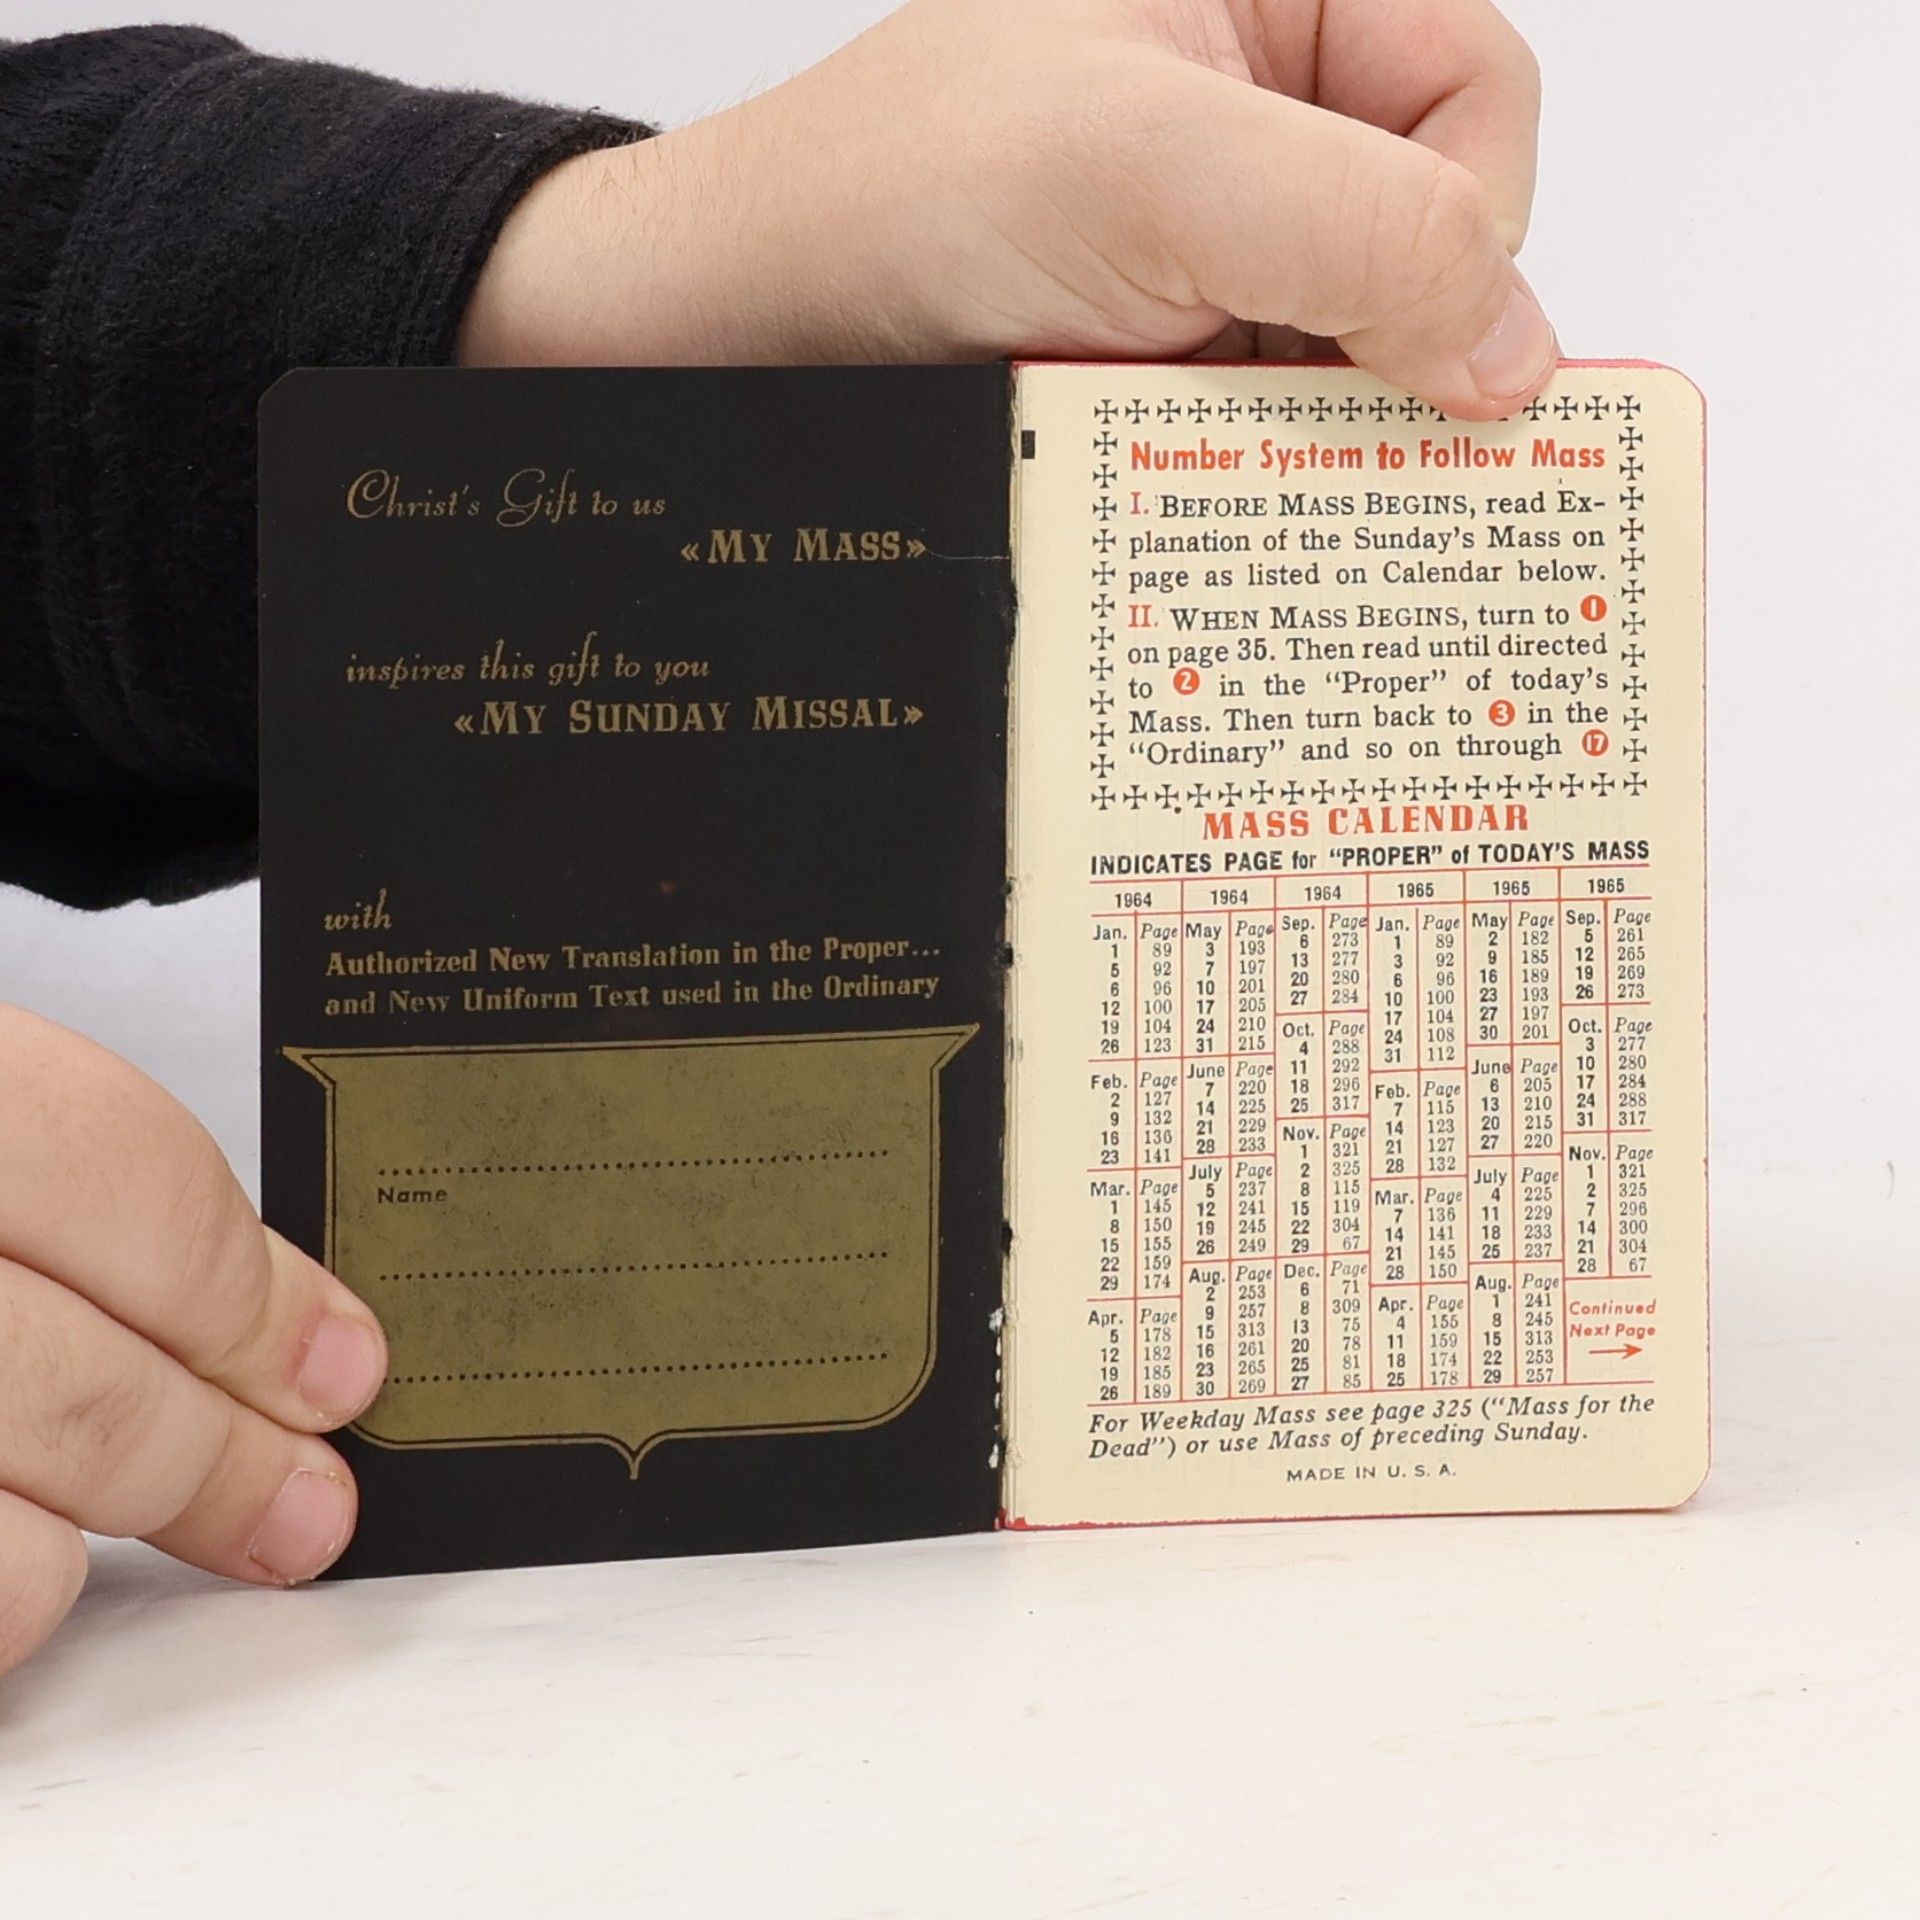 Christ's Gift to us
«MY MASS»
inspires this gift to you
«MY SUNDAY MISSAL»
with
Authorized New Translation in the Proper...
and New Uniform Text used in the Ordinary
Name
Number System to Follow Mass
I. BEFORE MASS BEGINS, read Ex-
planation of the Sunday's Mass on
page as listed on Calendar below.
II. WHEN MASS BEGINS, turn to 1
on page 35. Then read until directed
to 2 in the "Proper" of today's
Mass. Then turn back to 3 in the
"Ordinary" and so on through 17
MASS CALENDAR
INDICATES PAGE for "PROPER" of TODAY'S MASS
1964
Jan. Page
1 89
5 92
6 96
12 100
19 104
26 123
Feb. Page
2 127
9 132
16 136
23 141
Mar. Page
1 145
8 150
15 155
22 159
29 174
Apr. Page
5 178
12 182
19 185
26 189
1964
May Page
3 193
7 197
10 201
17 205
24 210
31 215
June Page
7 220
14 225
21 229
28 233
July Page
5 237
12 241
19 245
26 249
Aug. Page
2 253
9 257
15 313
16 261
23 265
30 269
1964
Sep. Page
6 273
13 277
20 280
27 284
Oct. Page
4 288
11 292
18 296
25 317
Nov. Page
1 321
2 325
8 115
15 119
22 304
29 67
Dec. Page
6 71
8 309
13 75
20 78
25 81
27 85
1965
Jan. Page
1 89
3 92
6 96
10 100
17 104
24 108
31 112
Feb. Page
7 115
14 123
21 127
28 132
Mar. Page
7 136
14 141
21 145
28 150
Apr. Page
4 155
11 159
18 174
25 178
1965
May Page
2 182
9 185
16 189
23 193
27 197
30 201
June Page
6 205
13 210
20 215
27 220
July Page
4 225
11 229
18 233
25 237
Aug. Page
1 241
8 245
15 313
22 253
29 257
1965
Sep. Page
5 261
12 265
19 269
26 273
Oct. Page
3 277
10 280
17 284
24 288
31 317
Nov. Page
1 321
2 325
7 296
14 300
21 304
28 67
Continued
Next Page
For Weekday Mass see page 325 ("Mass for the
Dead") or use Mass of preceding Sunday.
MADE IN U. S. A.